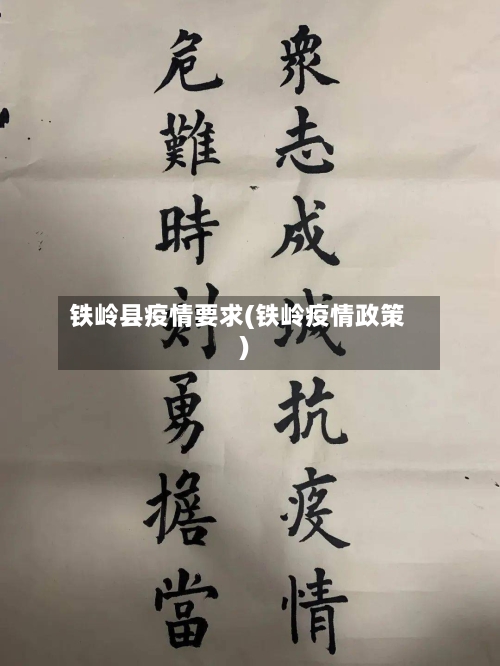 衆志成城抗疫情
危難時刻勇擔當
铁岭县疫情要求(铁岭疫情政策
)